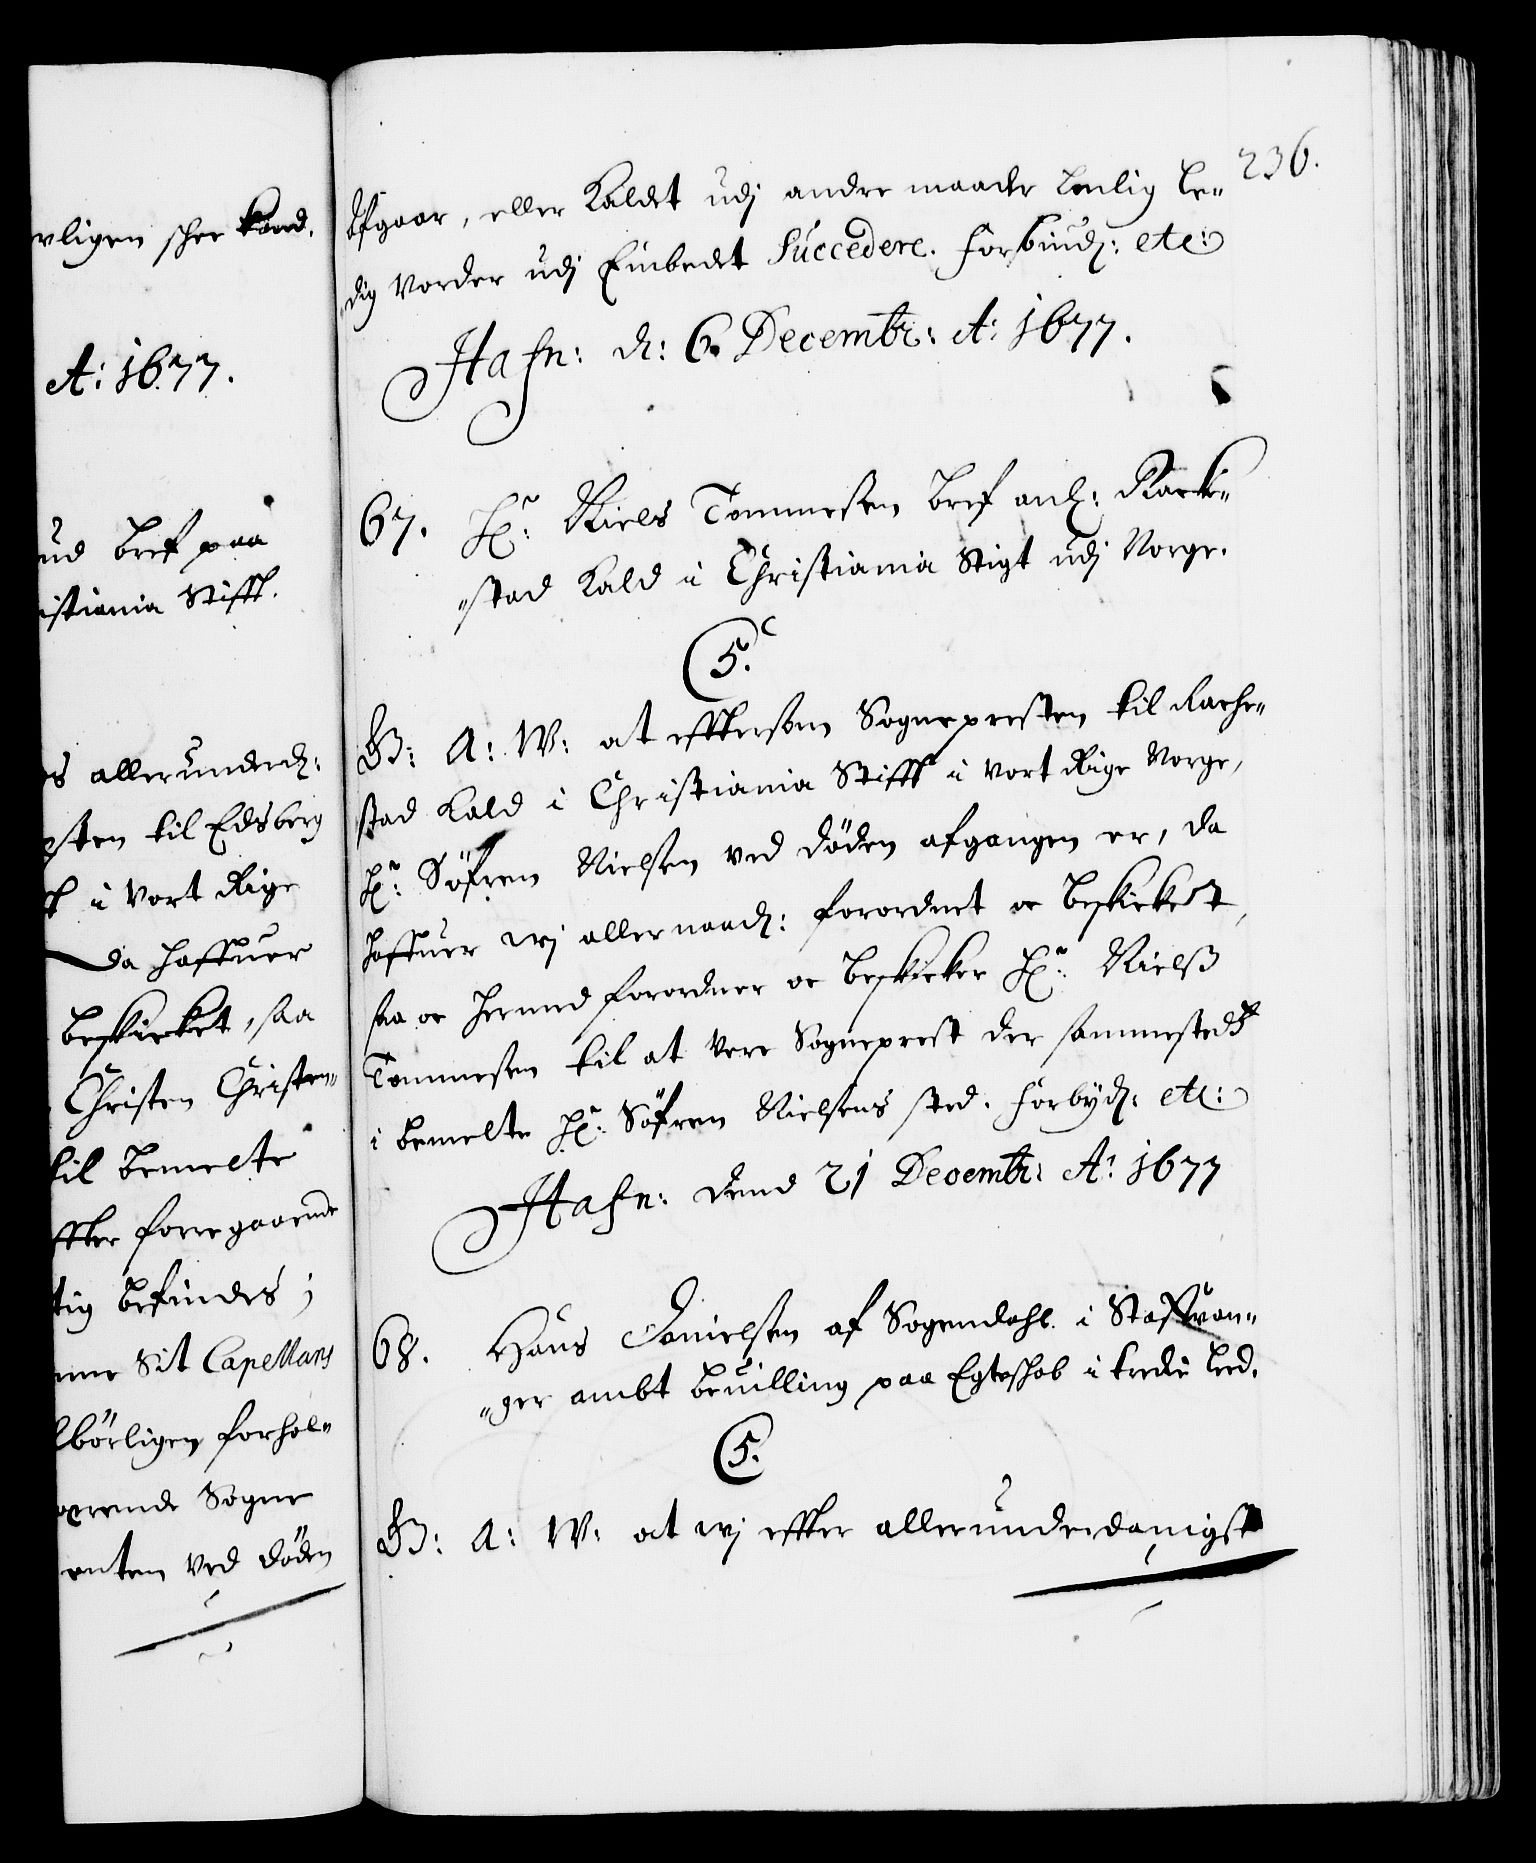 rligen schee kand.
A: 1677.
ud bref paa
istiania Stifft.
os allerunderd:
sten til Edsberg
t i vort Rige
da haffuer
beskicket, saa
Christen Christen„
til bemelte
ffter foregaaende
tig befindes;
nne Sit Capellans
lbörligen forhol„
værende Sogne
enten ved döden
236.
Afgaar, eller Kaldet udj andre maader lovlig le„
„dig vorder udj Embedet Succedere. forbiud: etc:
Hafn: d: 6. Decembr: A: 1677.
67. Hr: Niels Tommesen bref anl: Racke„
„stad Kald i Christiania Stigt udj Norge.
C 5.
G: A: W: at efftersom Sognepresten til Rache„
stad Kald i Christiania Stifft i vort Rige Norge,
Hr: Söfren Nielsen ved döden afgangen er, da
haffuer wj allernaad: forordnet oc beskicket,
saa oc hermed forordner oc beskicker Hr: Nielß
Tommesen til at vere Sogneprest der sammesteds
i bemelte Hr: Söfren Nielsens sted. forbyd: etc:
Hafn: dend 21 Decembr: A: 1677
68. Hans Danielsen af Sogendahl i Staffvan„
„ger ambt beuilling paa Egteskab i tredie Led.
C 5.
G: A: W: at wj effter allerunderdanigst